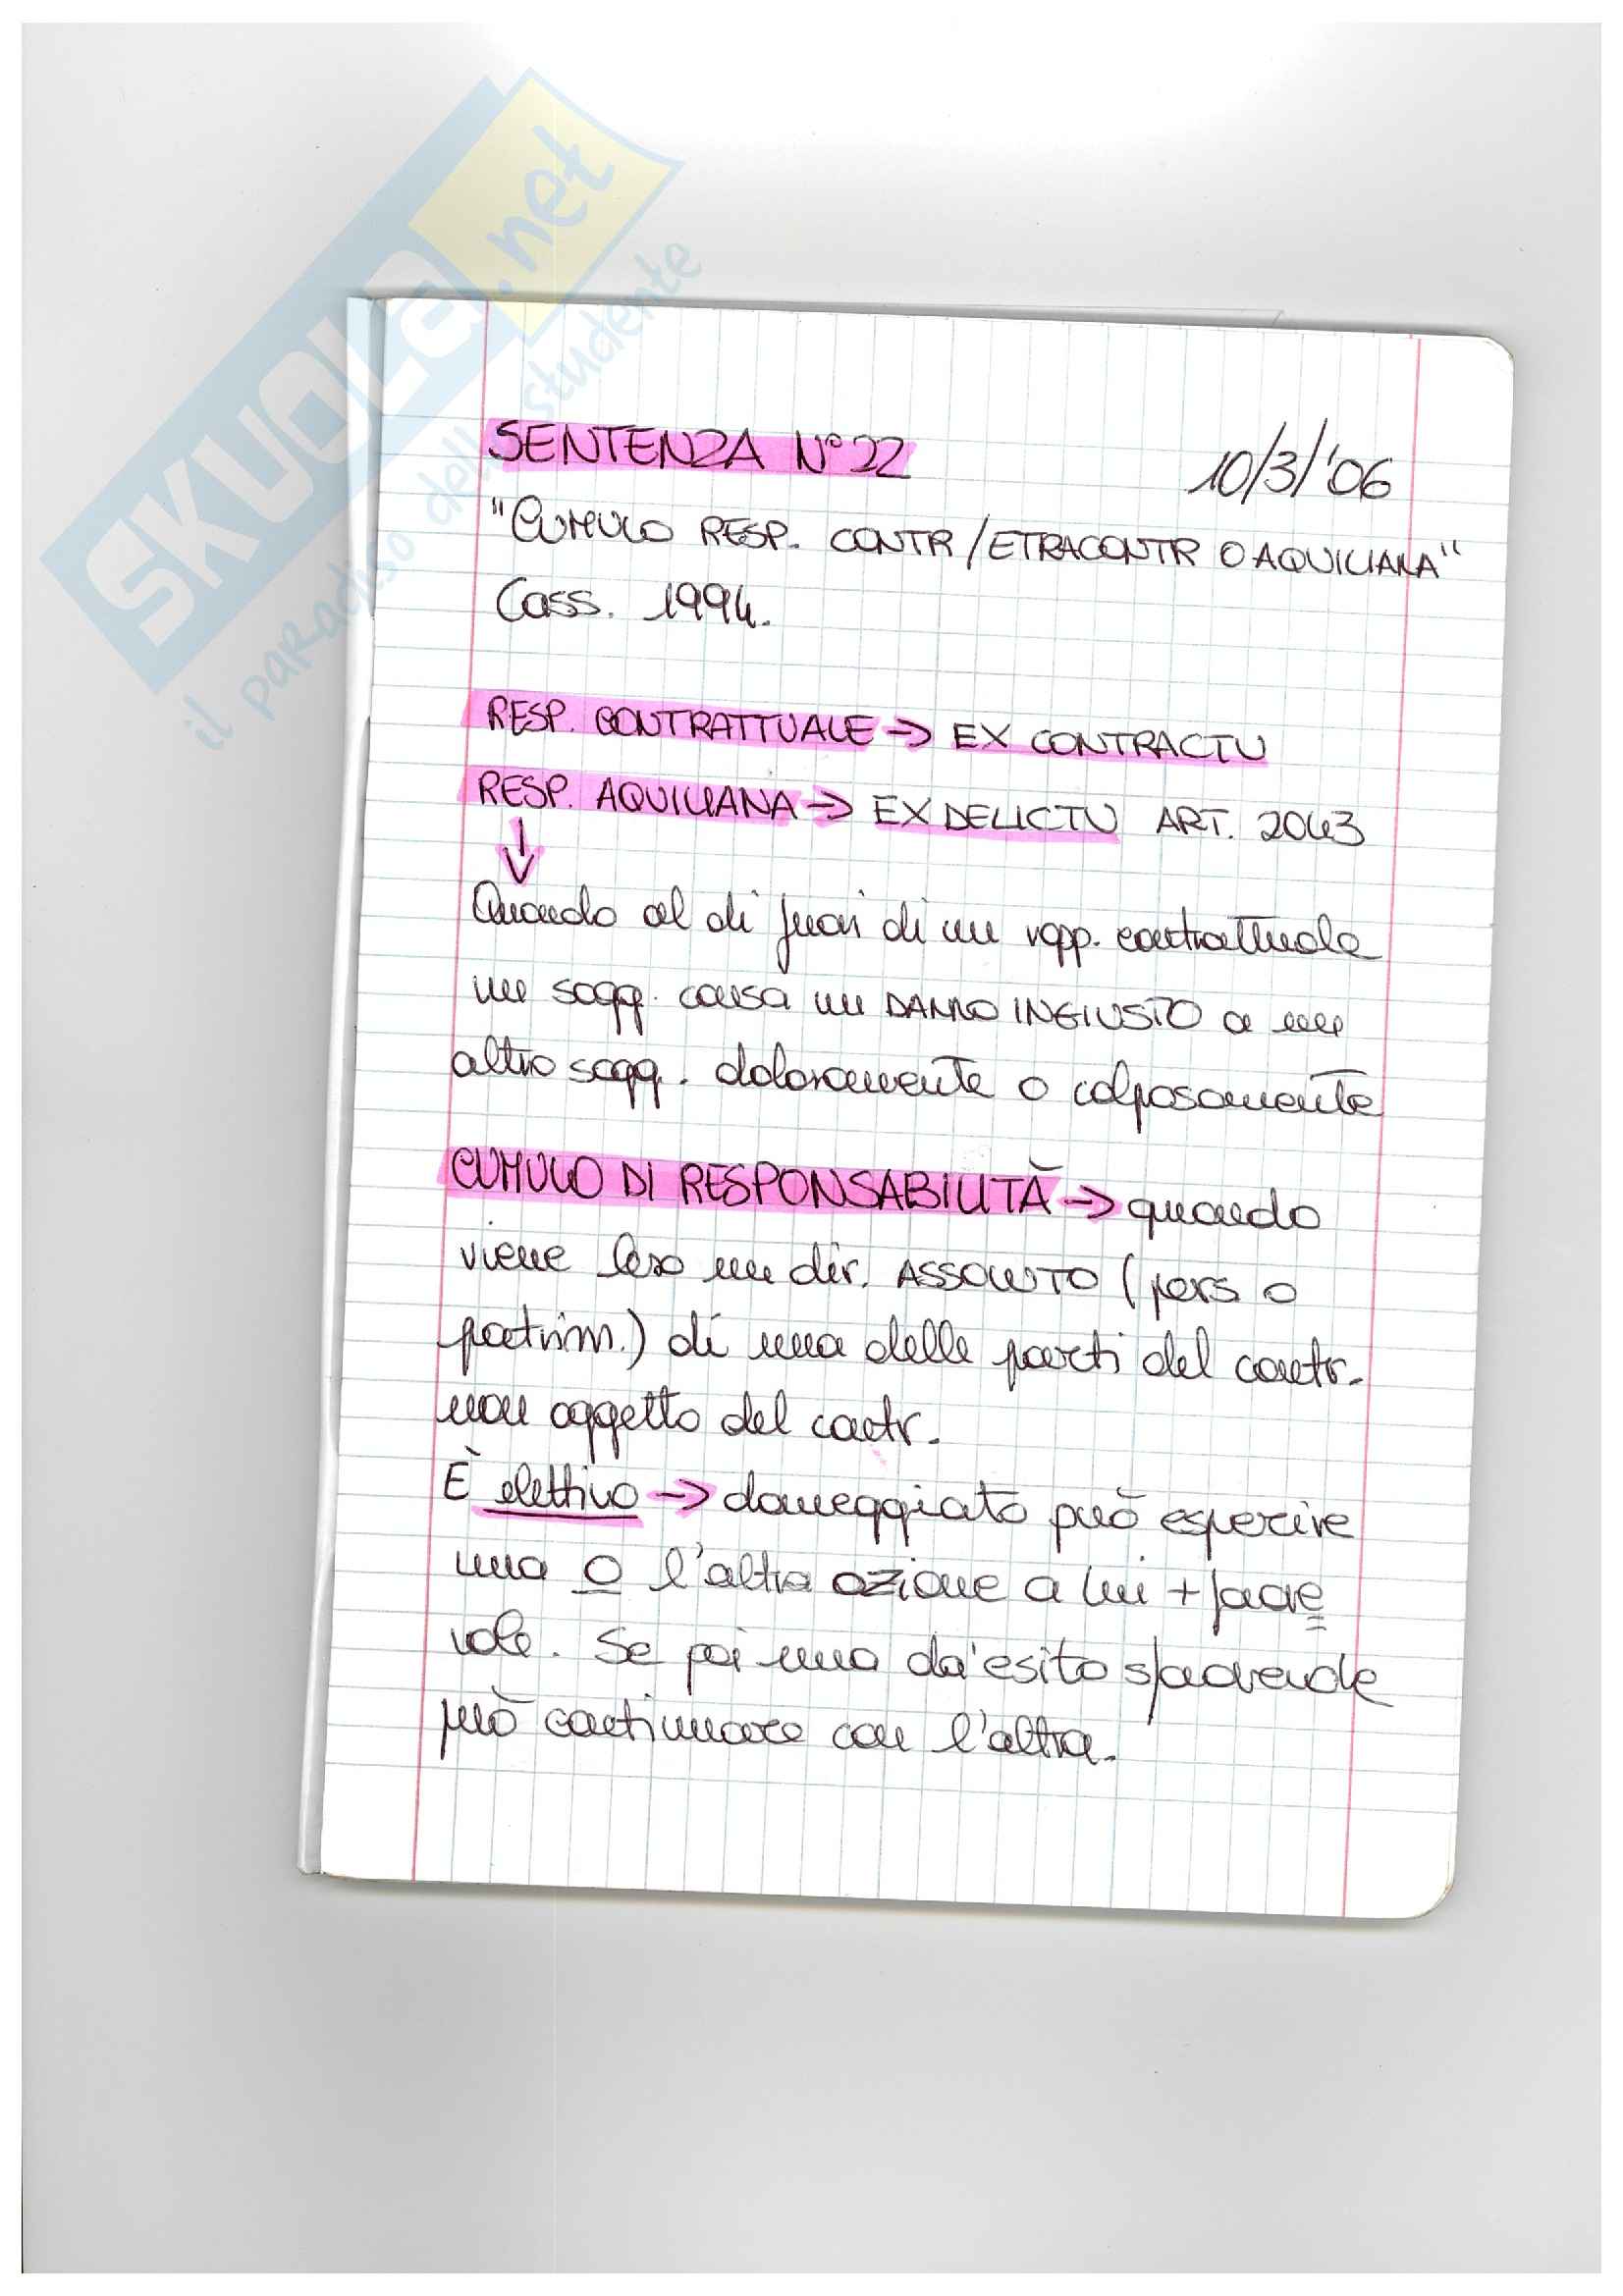 SKUOLA.net
il paradiso dello studente
SENTENZA N° 22
10/3/'06
"CUMULO RESP. CONTR/ETRACONTR O AQUILIANA"
Cass. 1994.
RESP. CONTRATTUALE -> EX CONTRACTU
RESP. AQUILIANA -> EX DELICTU ART. 2043
↓
Quando al di fuori di un rapp. contrattuale
un sogg. causa un DANNO INGIUSTO a un
altro sogg. dolosamente o colposamente
CUMULO DI RESPONSABILITÀ -> quando
viene leso un dir. ASSOLUTO (pers. o
patrim.) di una delle parti del contr.
non oggetto del contr.
È elettivo -> danneggiato può esperire
una O l'altra azione a lui + favore
vole. Se poi una da' esito sfavorevole
può continuare con l'altra.